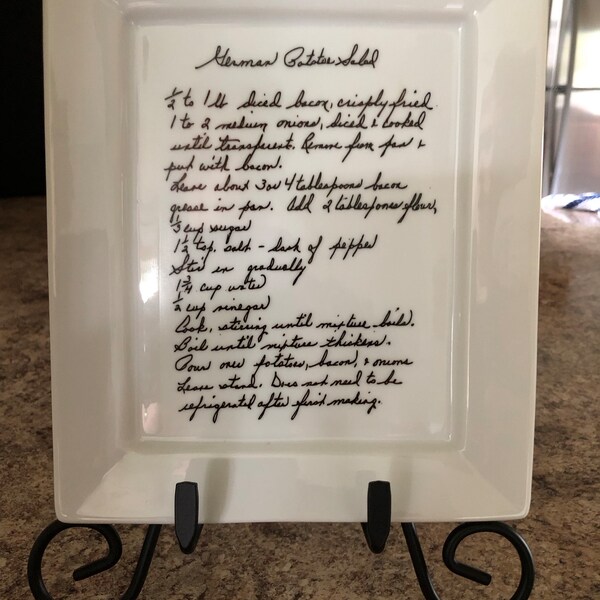 German Potato Salad
½ to 1 lb diced bacon, crisply fried
1 to 2 medium onions, diced & cooked
until transparent. Remove from pan &
put with bacon.
Leave about 3 or 4 tablespoons bacon
grease in pan. Add 2 tablespoons flour,
⅓ cup sugar
1½ tsp. salt - dash of pepper
Stir in gradually
1¾ cup water
½ cup vinegar
Cook, stirring until mixture boils.
Boil until mixture thickens.
Pour over potatoes, bacon, & onions
Leave stand. Does not need to be
refrigerated after first making.